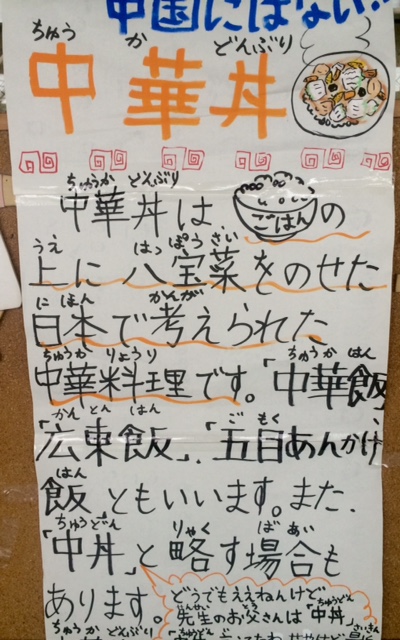 中国にはない!!
ちゅう か どんぶり
中華丼
ちゅうか どんぶり
中華丼は ごはん の
うえ はっぽうさい
上に八宝菜をのせた
にほん かんが
日本で考えられた
ちゅうか りょうり ちゅうか はん
中華料理です。「中華飯」
かんとん はん ごもく
「広東飯」、「五目あんかけ
はん
飯」ともいいます。また、
ちゅうどん りゃく ばあい
「中丼」と略す場合も
あります。
どうでもええねんけど、
せんせい とう ちゅうどん
先生のお父さんは「中丼」